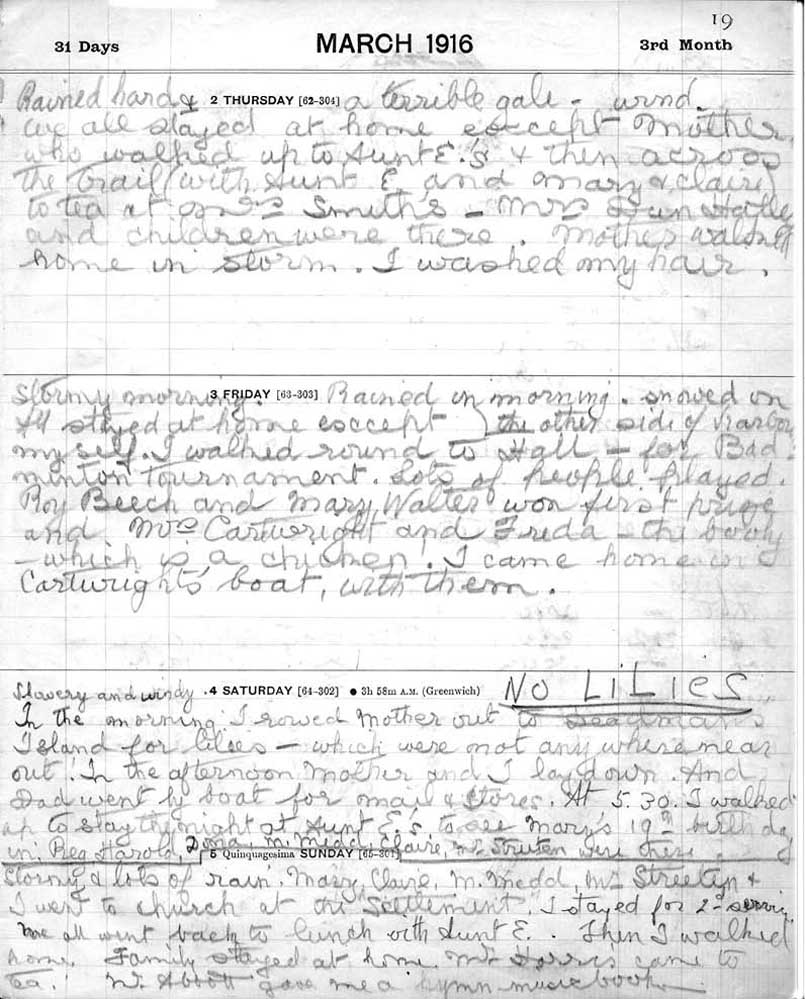 19
31 Days MARCH 1916 3rd Month
Rained hard & 2 THURSDAY [62-304] a terrible gale - wind.
We all stayed at home except Mother
who walked up to Aunt E.'s & then across
the trail (with Aunt E. and Mary & Claire)
to tea at Mrs Smiths - Mrs
and children were there. Mother walked
home in storm. I washed my hair.
Stormy morning. 3 FRIDAY [63-303] Rained in morning. snowed on
All stayed at home except } the other side of harbour
myself. I walked round to Hall - for Bad
minton Tournament. Lots of people played.
Roy Beech and Mary Walter won first prize
and Mrs Cartwright and Freda - the booby
- which is a chicken! I came home in
Cartwrights' boat, with them.
Showery and windy. 4 SATURDAY [64-302] ● 3h 58m A.M. (Greenwich) NO LiLiES
In the morning I rowed Mother out to Deadman's
Island for lilies - which were not anywhere near
out! In the afternoon Mother and I lay down. And
Dad went by boat for mail & stores. At 5.30. I walked
up to stay the night at Aunt E.'s to see Mary's 19th birthday
in. Reg Harold, Dona, M. Medd, Claire, Mr were there.
5 Quinquagesima SUNDAY [65-301]
Stormy & lots of rain. Mary, Claire, M. Medd, Mr &
I went to church at the "Settlement". I stayed for 2nd service.
We all went back to lunch with Aunt E. Then I walked
home. Family stayed at home. Mr came to
tea. Mr Abbott gave me a hymn music book.